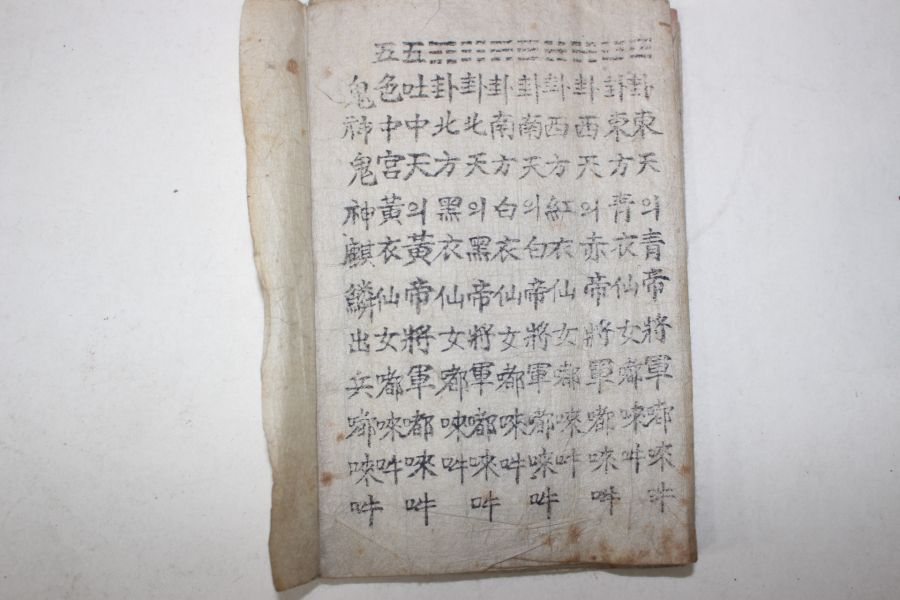 卦東天의青帝將軍嘟唻吽
卦東方青衣仙女嘟唻吽
卦西天의赤帝將軍嘟唻吽
卦西方紅衣仙女嘟唻吽
卦南天의白帝將軍嘟唻吽
卦南方白衣仙女嘟唻吽
卦北天의黑帝將軍嘟唻吽
卦北方黑衣仙女嘟唻吽
五吐中天의黃帝將軍嘟唻吽
五色中宮黃衣仙女嘟唻吽
鬼神鬼神麒麟出兵嘟唻吽